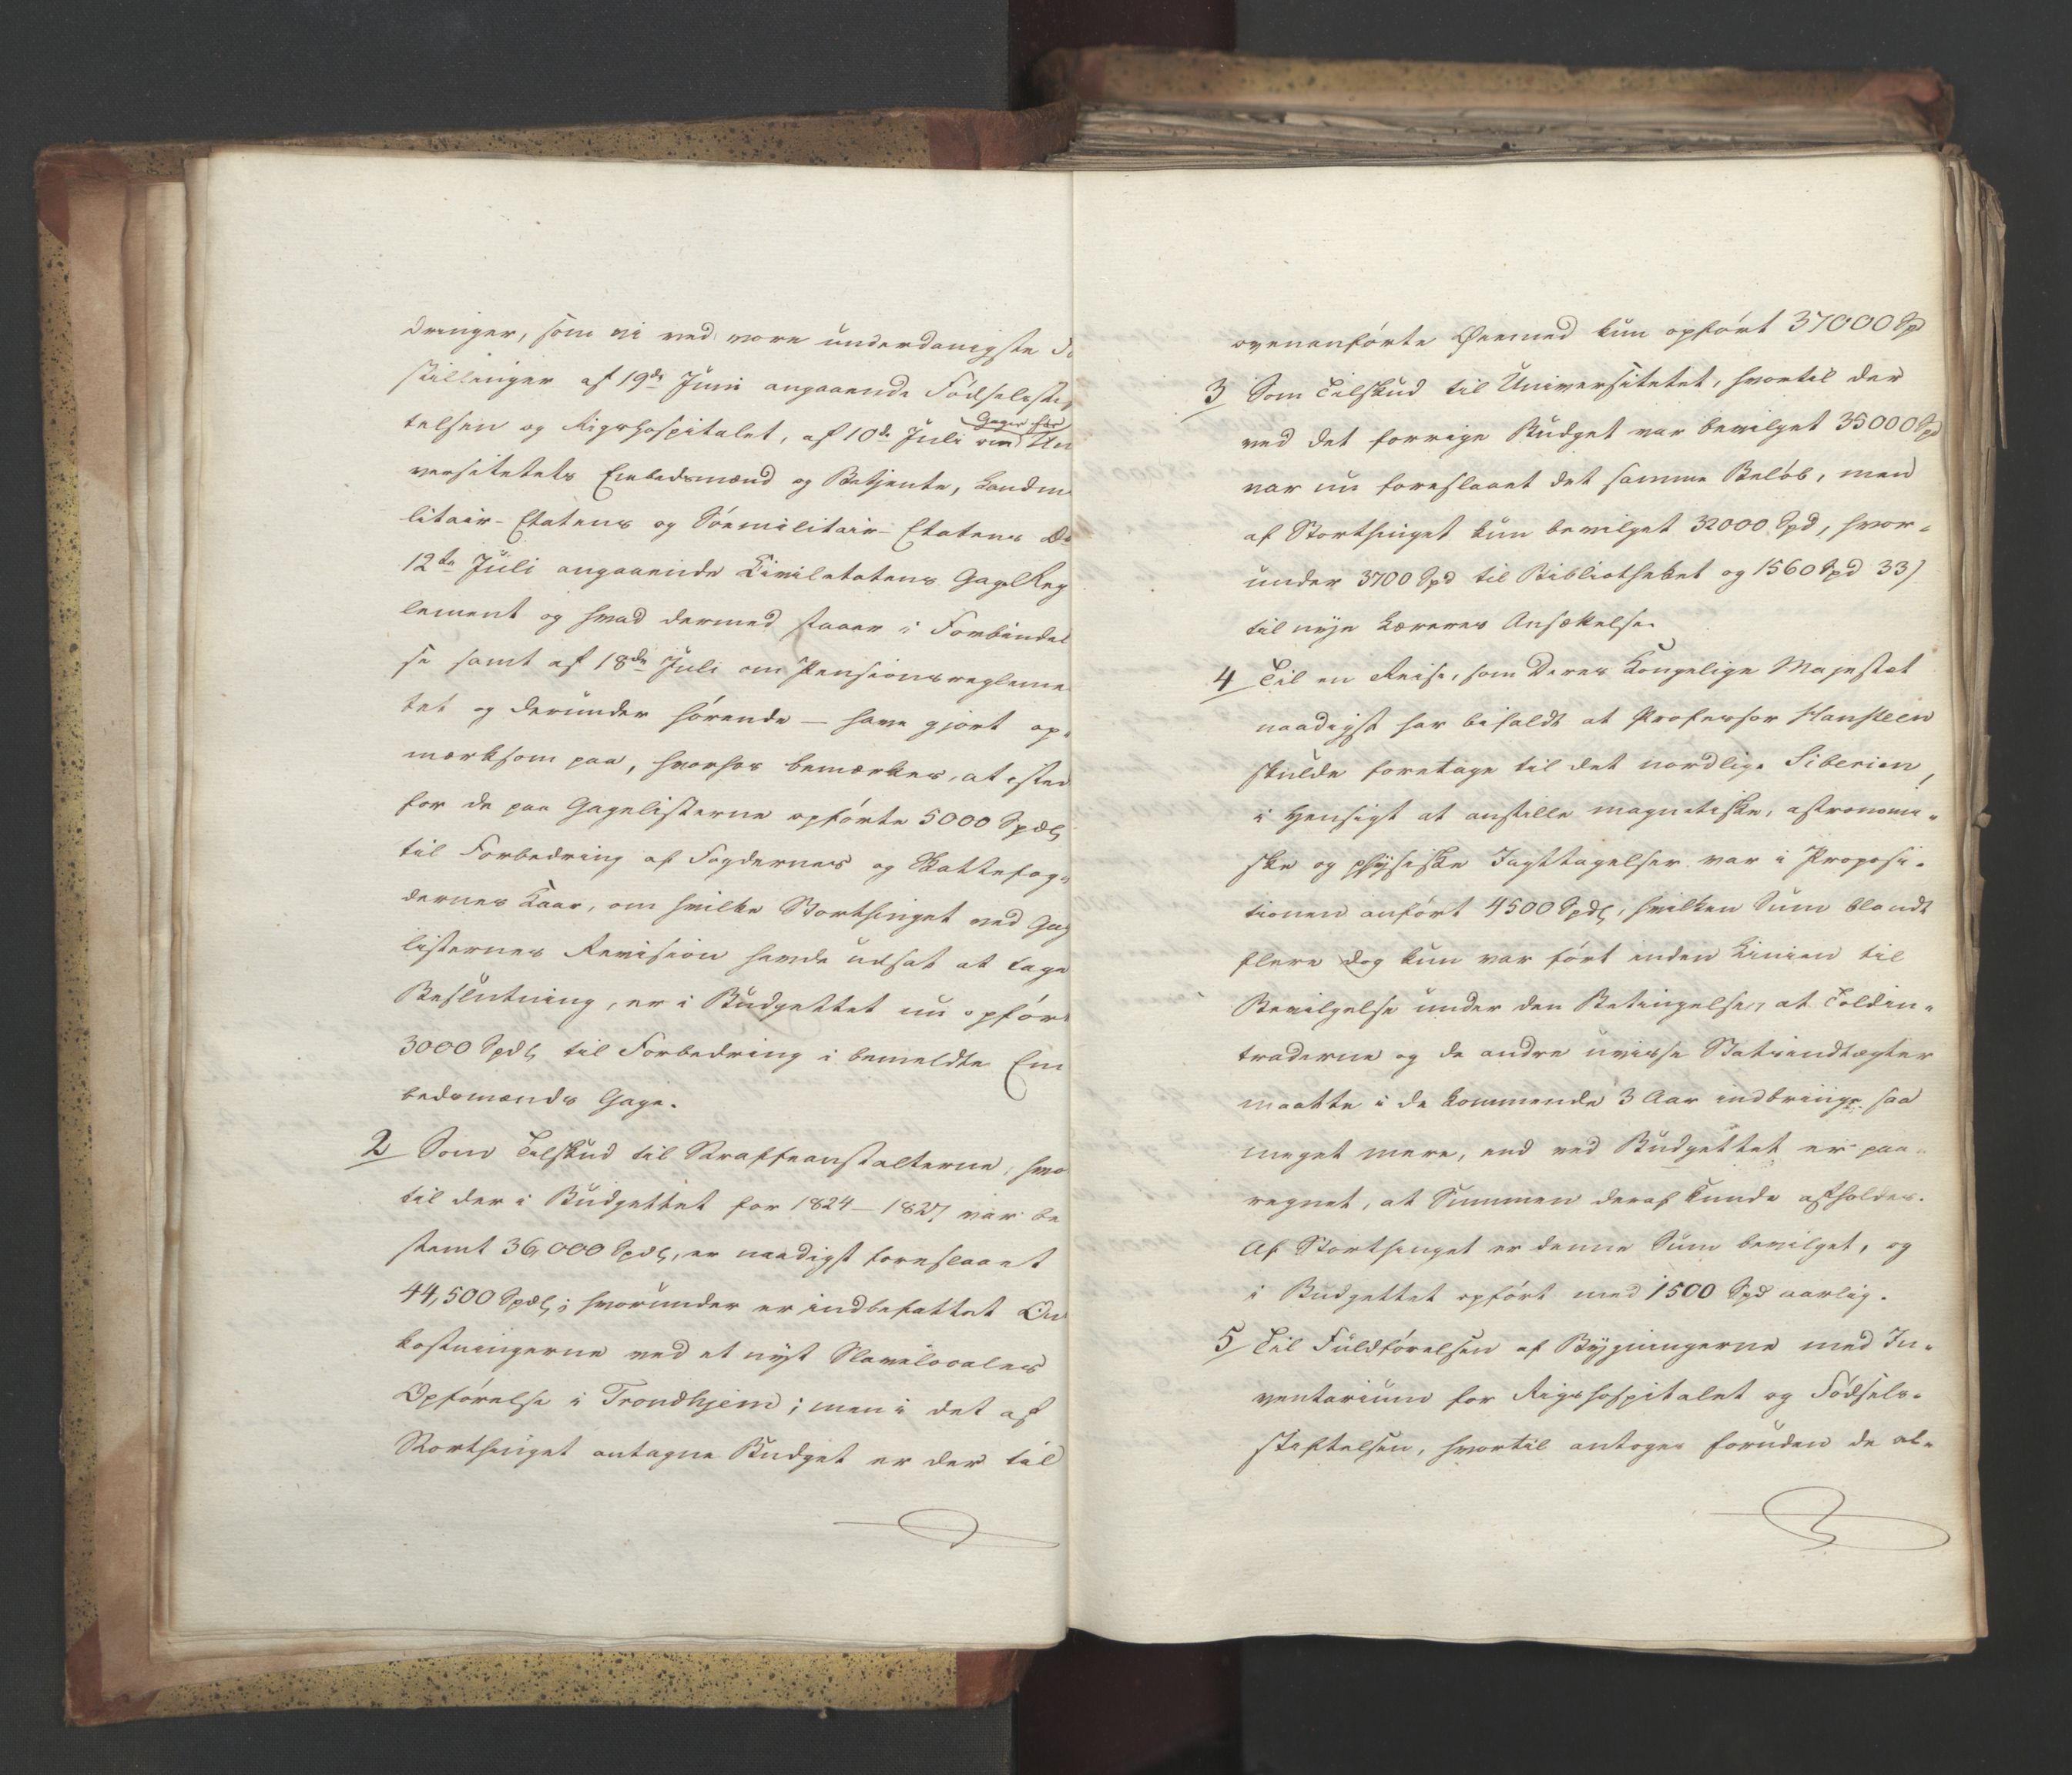 dringer, som vi ved vore underdanigste
stillinger af 19de Juni angaaende Fødselsstif
telsen og Rigshospitalet, af 10de Juli om Gager for Un
versitetets Embedsmænd og Betjente, Landmi
litair-Etatens og Søemilitair-Etatens
12te Juli angaaende Civiletatens GageReg
lement og hvad dermed staaer i Forbindel
se samt af 18de Juli om Pensionsregleme
tet og derunder hørende – have gjort op-
mærksom paa, hvorhos bemærkes, at istæd
for de paa Gagelisterne opførte 5000 Spdl
til Forbedring af Fogdernes og Skattefog-
dernes Kaar, om hvilke Storthinget ved Gag
listernes Revision havde udsat at tage
Beslutning, er i Budgettet nu opført
3000 Spdl til Forbedring i bemeldte Em
bedsmænds Gage.
2 Som Tilskud til Straffeanstalterne, hvor
til der i Budgettet for 1824–1827 var be
stemt 36,000 Spdl, er naadigst foreslaaet
44,500 Spdl; hvorunder er indbefattet Om
kostningerne ved et nyt Slavelocales
Opførelse i Trondhjem; men i det af
Storthinget antagne Budget er der til
ovenanførte Øiemed kun opført 37000 Spd
3 Som Tilskud til Universitetet, hvortil der
ved det forrige Budget var bevilget 35000 Spd
var nu foreslaaet det samme Beløb, men
af Storthinget kun bevilget 32000 Spd, hvor-
under 3700 Spd til Bibliotheket og 1560 Spd 33)
til nye Læreres Ansættelse.
4 Til en Reise, som Deres Kongelige Majestæt
naadigst har bifaldt at Professor Hansteen
skulde foretage til det nordlige Siberien,
i Hensigt at anstille magnetiske, astronomi-
ske og physiske Iagttagelser var i Proposi-
tionen anført 4500 Spdl, hvilken Sum blandt
flere dog kun var ført inden Linien til
Bevilgelse under den Betingelse, at Toldin-
traderne og de andre uvisse Statsindtægter
maatte i de kommende 3 Aar indbringe saa
meget mere, end ved Budgettet er paa-
regnet, at Summen deraf kunde afholdes.
Af Storthinget er denne Sum bevilget, og
i Budgettet opført med 1500 Spd aarlig.
5 Til Fuldførelsen af Bygningerne med In-
ventarium for Rigshospitalet og Fødsels-
stiftelsen, hvortil antoges foruden de al-